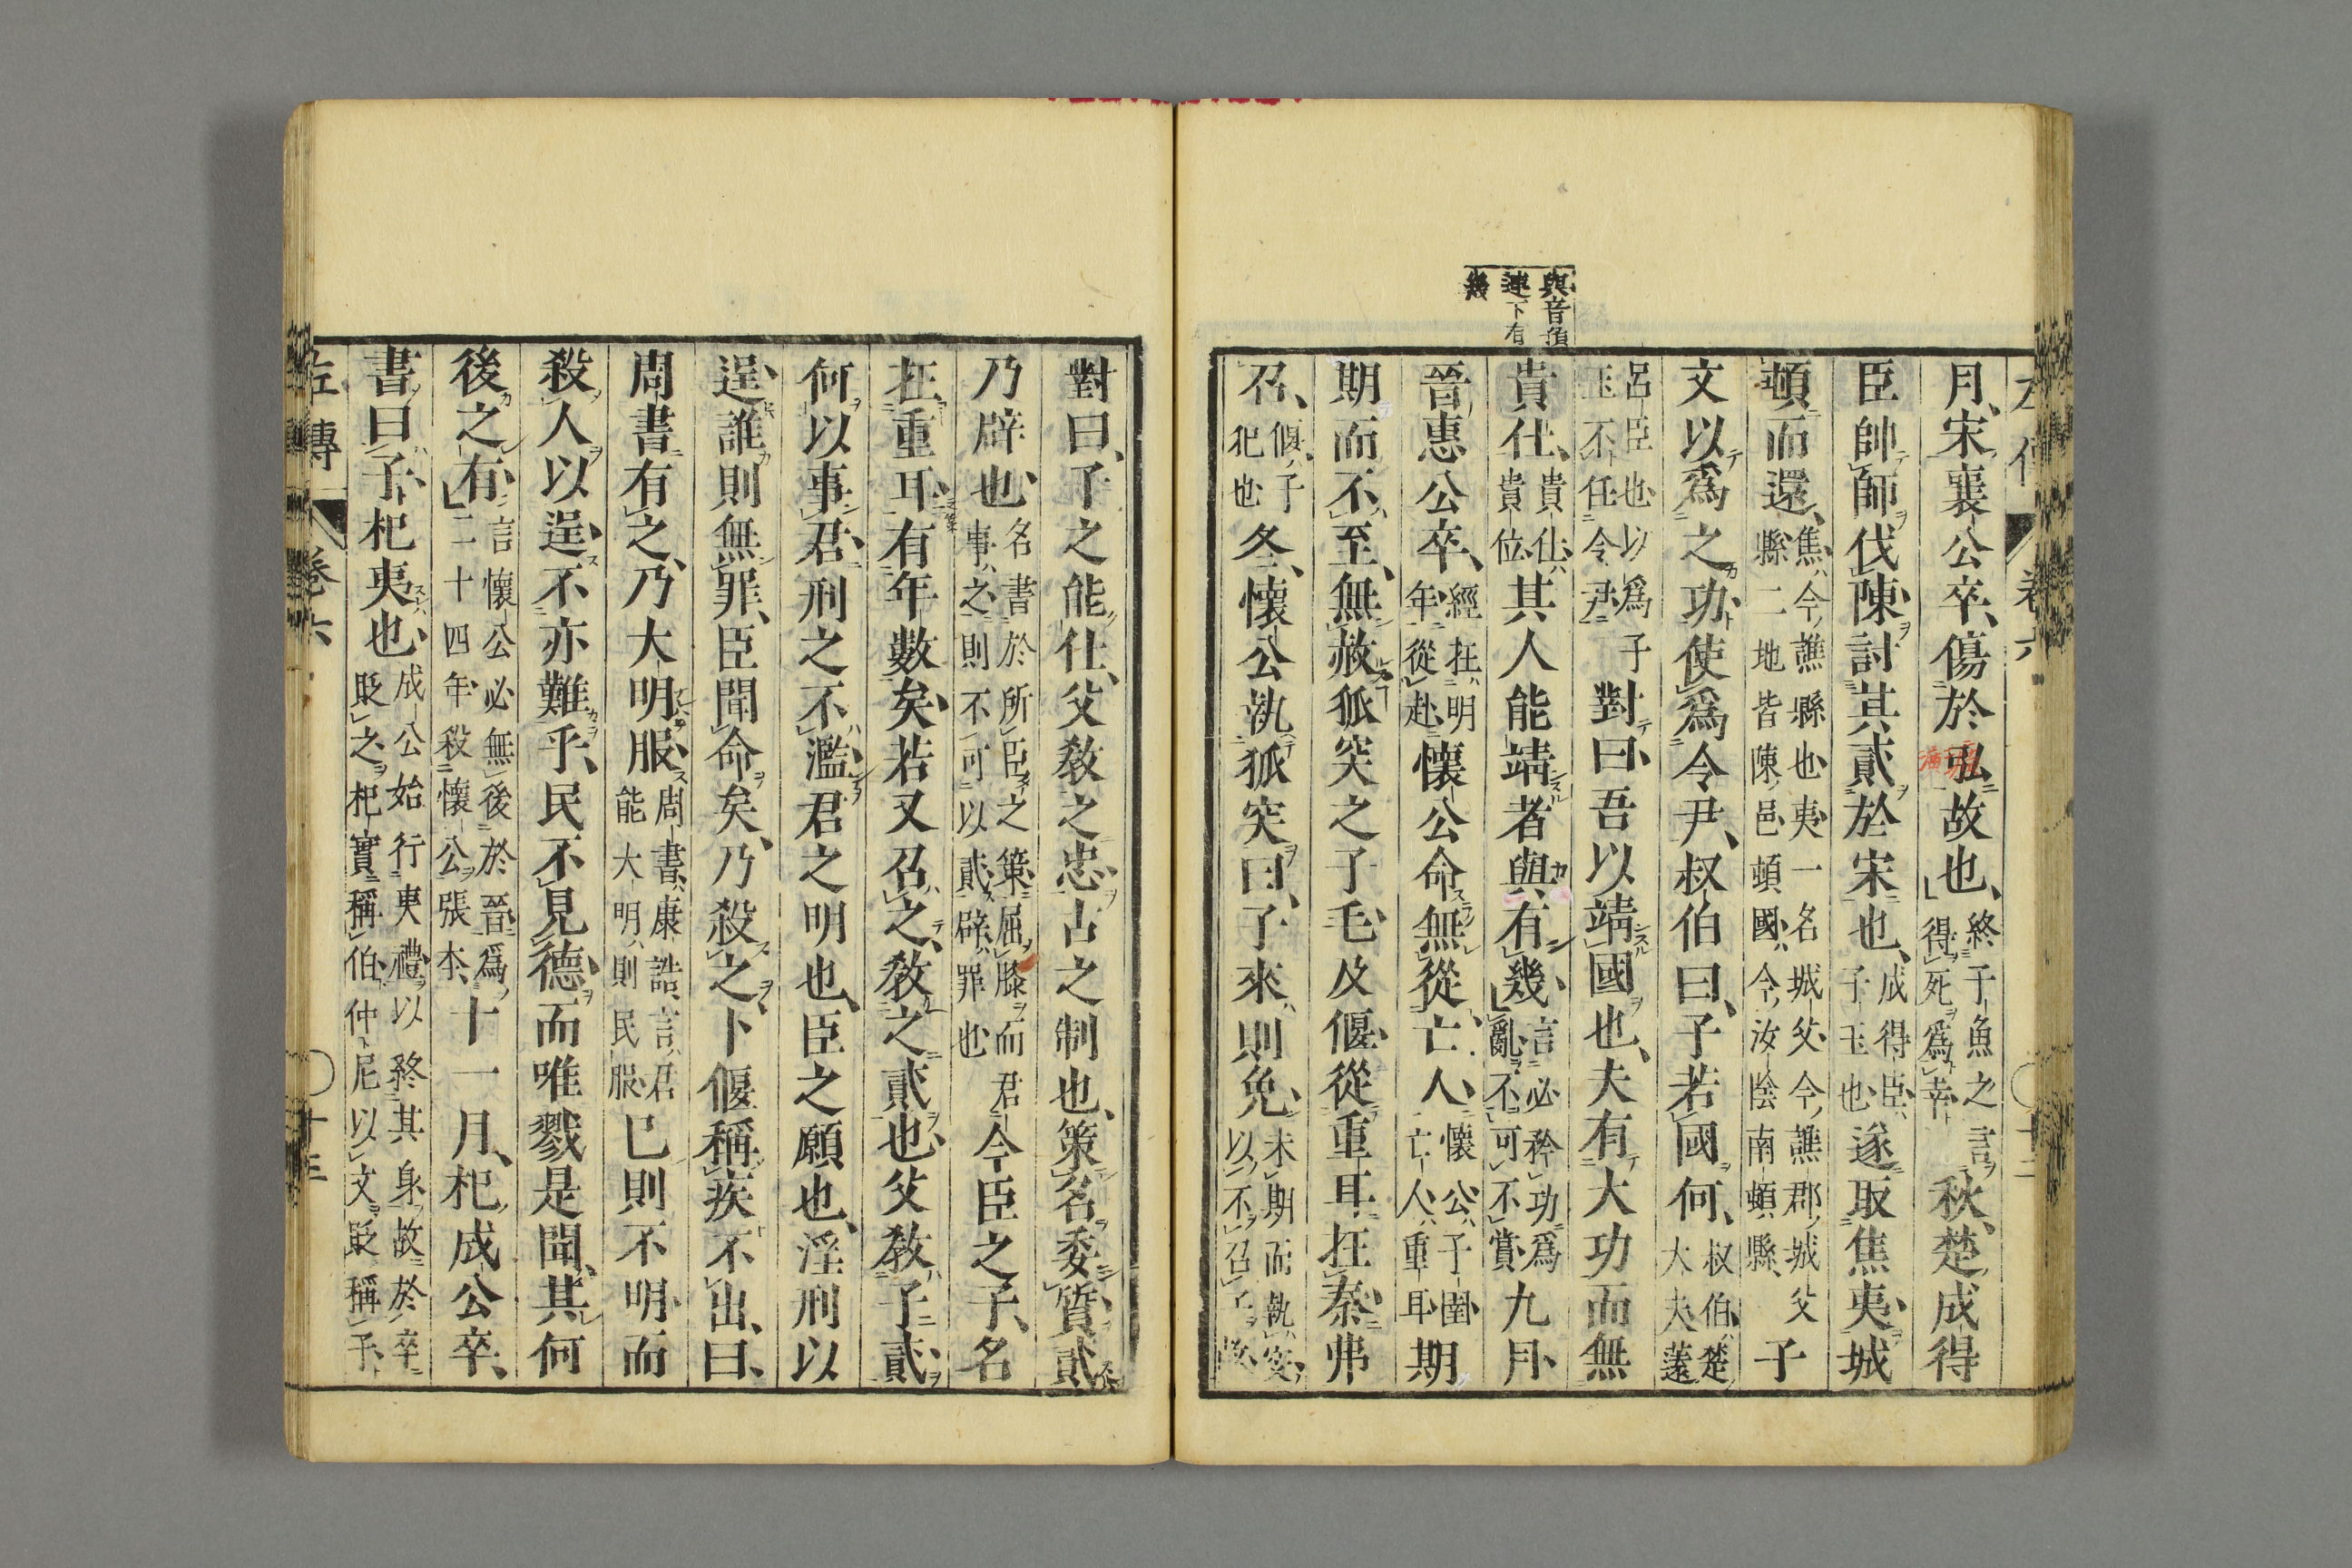 與音預
連下有
幾
卷六
月、宋襄公卒、傷於泓故也、終子魚之言得死爲幸秋、楚成得
臣帥師伐陳討其貳於宋也、成得臣子玉也遂取焦夷城
頓而還、焦今譙縣也夷一名城父今譙郡城父縣二地皆陳邑頓國今汝陰南頓縣子
文以爲之功使爲令尹、叔伯曰、子若國何、叔伯楚大夫薳
呂臣也以爲子玉不任令尹對曰吾以靖國也、夫有大功而無
貴仕、貴仕貴位其人能靖者與有幾、言必矜功爲亂不可不賞九月、
晉惠公卒、經在明年從赴懷公命無從亡人、懷公子圉亡人重耳期
期而不至、無赦狐突之子毛及偃從重耳在秦弗
召、偃子犯也冬、懷公執狐突曰、子來則免、未期而執突以不召子故
對曰、子之能仕、父敎之忠古之制也、策名委質貳
乃辟也名書於所臣之策屈膝而君事之則不可以貳辟罪也今臣之子、名
在重耳有年數矣若又召之、敎之貳也父敎子貳
何以事君刑之不濫君之明也、臣之願也、淫刑以
逞誰則無罪、臣聞命矣、乃殺之、卜偃稱疾不出、曰、
周書有之、乃大明服周書康誥言君能大明則民服已則不明而
殺人以逞不亦難乎、民不見德而唯戮是聞、其何
後之有言懷公必無後於晉爲二十四年殺懷公張本十一月、杞成公卒、
書曰子杞夷也成公始行夷禮以終其身故於卒貶之杞實稱伯仲尼以文貶稱子
左傳 卷六 十三